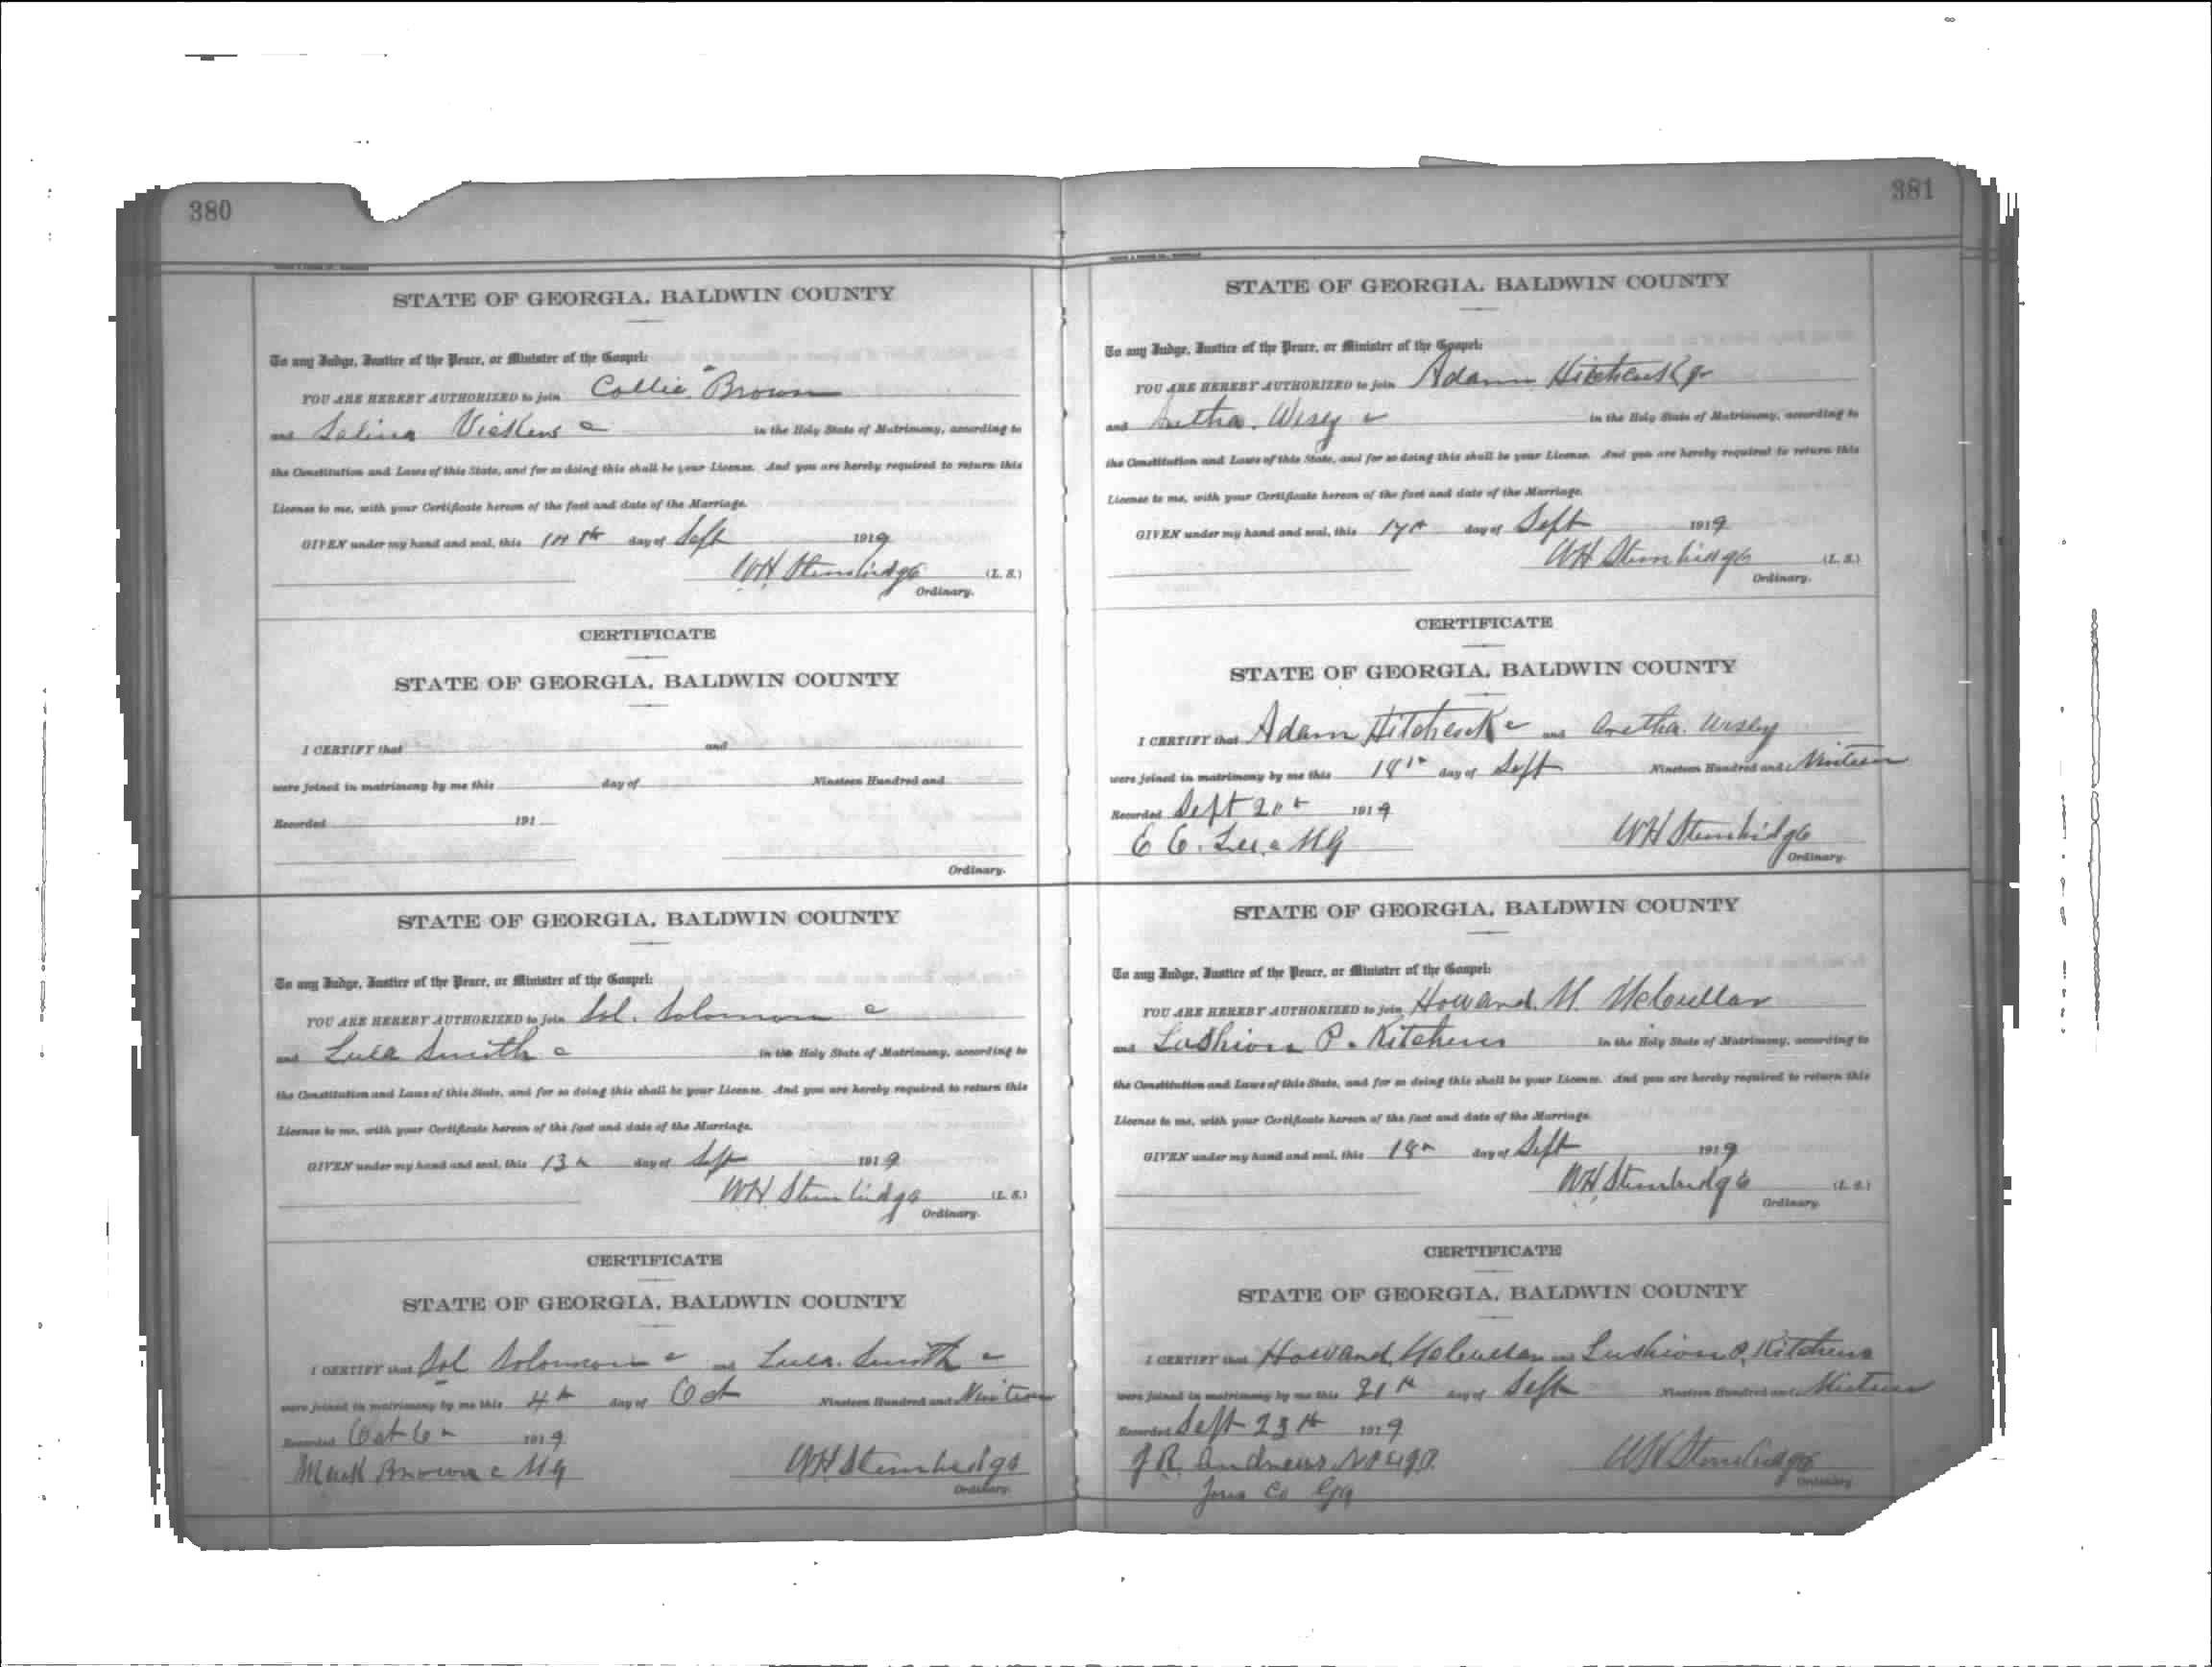 380
STATE OF GEORGIA, BALDWIN COUNTY
To any Judge, Justice of the Peace, or Minister of the Gospel:
YOU ARE HEREBY AUTHORIZED to join Collie Brown
and Selina Vickens c in the Holy State of Matrimony, according to
the Constitution and Laws of this State, and for so doing this shall be your License. And you are hereby required to return this
License to me, with your Certificate hereon of the fact and date of the Marriage.
GIVEN under my hand and seal, this day of Sept 1919
WH Stembridge (L. S.)
Ordinary.
CERTIFICATE
STATE OF GEORGIA, BALDWIN COUNTY
I CERTIFY that and
were joined in matrimony by me this day of Nineteen Hundred and
Recorded 191
Ordinary.
STATE OF GEORGIA, BALDWIN COUNTY
To any Judge, Justice of the Peace, or Minister of the Gospel:
YOU ARE HEREBY AUTHORIZED to join Sol. Solomon c
and Lula Smith c in the Holy State of Matrimony, according to
the Constitution and Laws of this State, and for so doing this shall be your License. And you are hereby required to return this
License to me, with your Certificate hereon of the fact and date of the Marriage.
GIVEN under my hand and seal, this 13th day of Sept 1919
WH Stembridge (L. S.)
Ordinary.
CERTIFICATE
STATE OF GEORGIA, BALDWIN COUNTY
I CERTIFY that Sol Solomon c and Lula Smith c
were joined in matrimony by me this 4th day of Oct Nineteen Hundred and Nineteen
Recorded Oct 6th 1919
Mack Brown c MG WH Stembridge
Ordinary.
381
STATE OF GEORGIA, BALDWIN COUNTY
To any Judge, Justice of the Peace, or Minister of the Gospel:
YOU ARE HEREBY AUTHORIZED to join Adam Hitchcock Jr
and Aretha Wesley c in the Holy State of Matrimony, according to
the Constitution and Laws of this State, and for so doing this shall be your License. And you are hereby required to return this
License to me, with your Certificate hereon of the fact and date of the Marriage.
GIVEN under my hand and seal, this 17th day of Sept 1919
WH Stembridge (L. S.)
Ordinary.
CERTIFICATE
STATE OF GEORGIA, BALDWIN COUNTY
I CERTIFY that Adam Hitchcock c and Aretha Wesley
were joined in matrimony by me this 18th day of Sept Nineteen Hundred and Nineteen
Recorded Sept 20th 1919
E E. Lee c MG WH Stembridge
Ordinary.
STATE OF GEORGIA, BALDWIN COUNTY
To any Judge, Justice of the Peace, or Minister of the Gospel:
YOU ARE HEREBY AUTHORIZED to join Howard M. McCullar
and Lushion P. Kitchens in the Holy State of Matrimony, according to
the Constitution and Laws of this State, and for so doing this shall be your License. And you are hereby required to return this
License to me, with your Certificate hereon of the fact and date of the Marriage.
GIVEN under my hand and seal, this 18th day of Sept 1919
WH Stembridge (L. S.)
Ordinary.
CERTIFICATE
STATE OF GEORGIA, BALDWIN COUNTY
I CERTIFY that Howard McCullar and Lushion P. Kitchens
were joined in matrimony by me this 21th day of Sept Nineteen Hundred and Nineteen
Recorded Sept 23th 1919
J R. Andrews WH Stembridge
Ordinary
Jones Co Ga